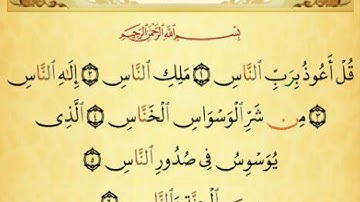 بِسْمِ ٱللَّهِ ٱلرَّحْمَٰنِ ٱلرَّحِيمِ
قُلْ أَعُوذُ بِرَبِّ ٱلنَّاسِ ١ مَلِكِ ٱلنَّاسِ ٢ إِلَٰهِ ٱلنَّاسِ
٣ مِن شَرِّ ٱلْوَسْوَاسِ ٱلْخَنَّاسِ ٤ ٱلَّذِى
يُوَسْوِسُ فِى صُدُورِ ٱلنَّاسِ ٥